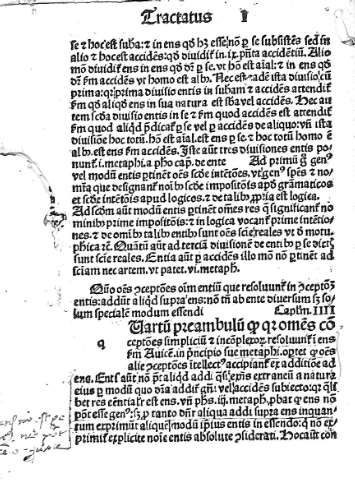 Tractatus I
se & hoc est suba: & in ens qd hʒ esse non p se subsistēs sed in
alio & hoc est accidēs: qd diuidit in .ix. pūta accidētiū. Alio
mō diuidit ens in ens qd dr̄ p se. vt hō est aīal: & in ens qd
dr̄ ꝑm accidēs vt homo est albꝰ. Nec est eadē ista diuisio cū
prima: qr prima diuisio entis in subam & accidēs attendit
ꝑm qd aliqd ens in sua natura est sba vel accidēs. Hec au
tem scda diuisio entis in se & ꝑm quod accidēs est attendit
ꝑm quod aliqd p̄dicat p se vel p accidēs de aliquo: vn̄ ista
diuisiōe hoc totū. hō est aīal. est ens p se & hoc totū homo ē
albꝰ. est ens ꝑm accidēs. Iste aūt tres diuisiones entis po
nunt i. metaphi. a pho cap. de ente Ad primū g gen
vel modū entis ꝑtinēt oēs scde intētōes. vt gen spēs & no
mīa que designant noībꝰ scde impositōis apd grāmaticos
et scde intētōis apud logicos. & de talibꝰ ꝓpria est logica.
Ad scdm aūt modū entis ꝑtinent omēs res q significant no
minibꝰ prime impositōis: & in logica vocant prime intētio
nes. & de omībꝰ talibꝰ entibꝰ sunt oēs sciē reales vt ꝺ metu
phica &c̄. Quātū aūt ad terciā diuisionē de entibꝰ p se dictʒ
sunt sciē reales. Entia aūt p accidēs illo mō nō ꝑtinēt ad
sciam nec artem. vt patet. vi. metaph.
Quō oēs ↄceptōes oīm entiū que resoluunt in ↄceptōʒ
entis: addūt aliqd supra ens: nō tn̄ ab ente diuersum sʒ so
lum specialē modum essendi Caplm. IIII
Uartū preambulū ꝙ qr omēs cō
q ceptōes simpliciū & incōplexoꝝ resoluunt i ens
ꝑm Auicē. in p̄ncipio sue metaphi. oꝑtet ꝙ oēs
alie ↄceptōes itellectꝰ accipiant ex additiōe ad
ens. Enti aūt nō pt aliqd addi qsi ens extraneū a natura
eius p modū quo dr̄a addit gn̄i vel accidēs subiecto: qr qli
bet res entialr est ens. vn̄ phs. iij. metaph. pbat ꝙ ens nō
pōt esse gen: sʒ p tanto dn̄r aliqua addi supra ens inquan
tum exprimūt aliquē modū ipsius entis in essendo: q nō ex
primit explicite noīe entis absolute ↄsiderati. Hoc aūt con